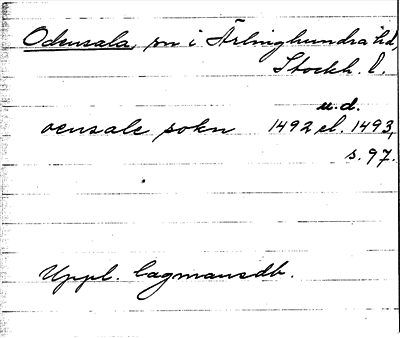 Odensala, sn i Ärlinghundra hd,
Stockh. l.
u.d.
oensale sokn 1492 el. 1493,
s. 97.
Uppl. lagmansdb.